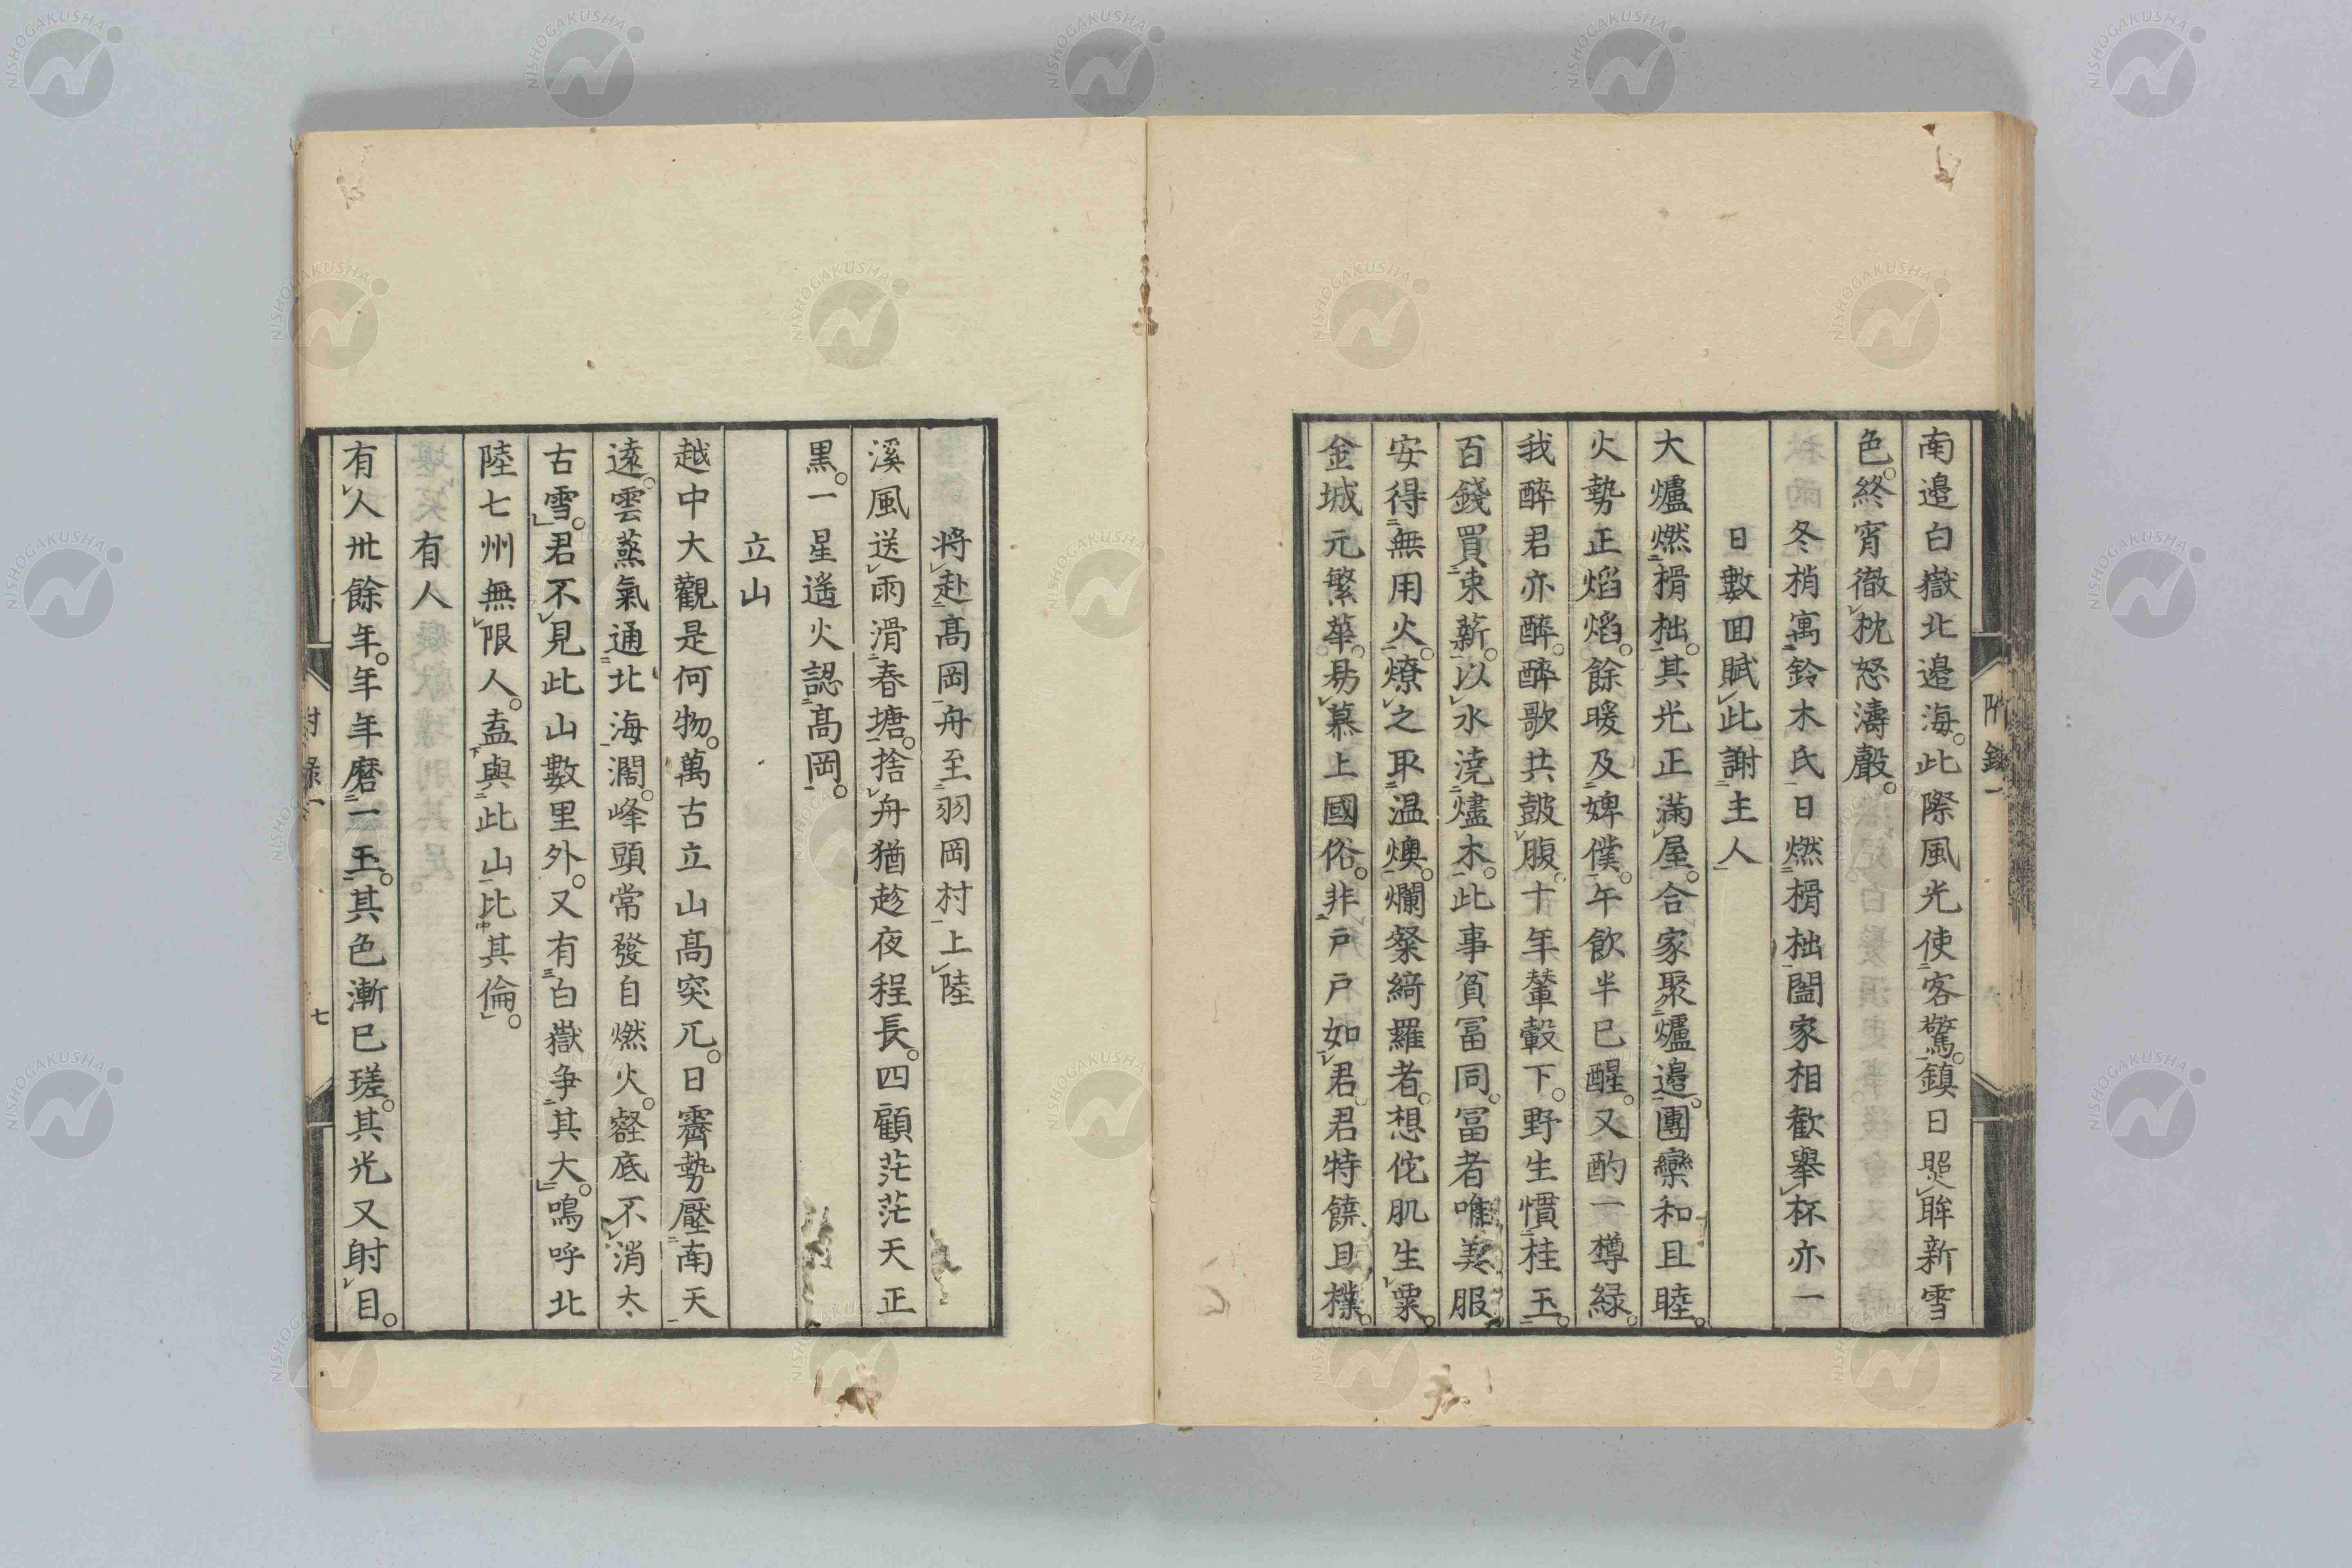 南邉白嶽北邉海。此際風光使客驚。鎮日照眸新雪
色。終宵徹枕怒濤聲。
冬梢寓鈴木氏日燃榾柮闔家相歓舉杯亦一
日數囬賦此謝主人
大爐燃榾柮。其光正滿屋。合家聚爐邉。團欒和且睦。
火勢正焰焰。餘暖及婢僕。午飲半已醒。又酌一樽緑。
我醉君亦醉。醉歌共皷腹。十年輦轂下。野生慣桂玉。
百錢買束薪。以水澆燼木。此事貧冨同。冨者唯美服
安得無用火。燎之取温燠。爛粲綺羅者。想佗肌生粟。
金城元繁華。易慕上國俗。非戸戸如君。君特饒且樸。
附錄一
將赴髙岡舟至羽岡村上陸
溪風送雨滑春塘。捨舟猶趁夜程長。四顧茫茫天正
黒。一星遙火認髙岡。
立山
越中大觀是何物。萬古立山髙突兀。日霽勢壓南天
遠。雲蒸氣通北海濶。峰頭常發自燃火。壑底不消太
古雪。君不見此山數里外。又有白嶽争其大。鳴呼北
陸七州無限人。盍與此山比其倫。
有人
有人卅餘年。年年磨一玉。其色漸已瑳。其光又射目。
附錄一
七
NISHOGAKUSHA